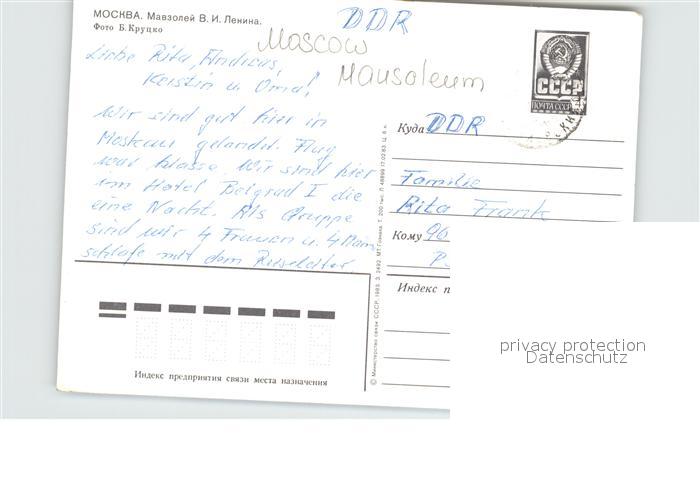 МОСКВА. Мавзолей В. И. Ленина.
Фото Б. Круцко
DDR
Moscow
Mausoleum
Liebe Rita, Andreas,
Kerstin u. Oma!
Wir sind gut hier in
Moskau gelandet. Flug
war klasse. Wir sind hier
im Hotel Belgrad I die
eine Nacht. Als Gruppe
sind wir 4 Frauen u. 4 Män
schlafe mit dem Reiseleiter
СССР
ПОЧТА СССР
Куда DDR
Familie
Rita Frank
Кому 96
Индекс п
Индекс предприятия связи места назначения
© Министерство связи СССР, 1983. З. 2492. МТ Гознака. Т. 200 тыс. Л 48899 17.02.83. Ц. 6 к.
privacy protection
Datenschutz